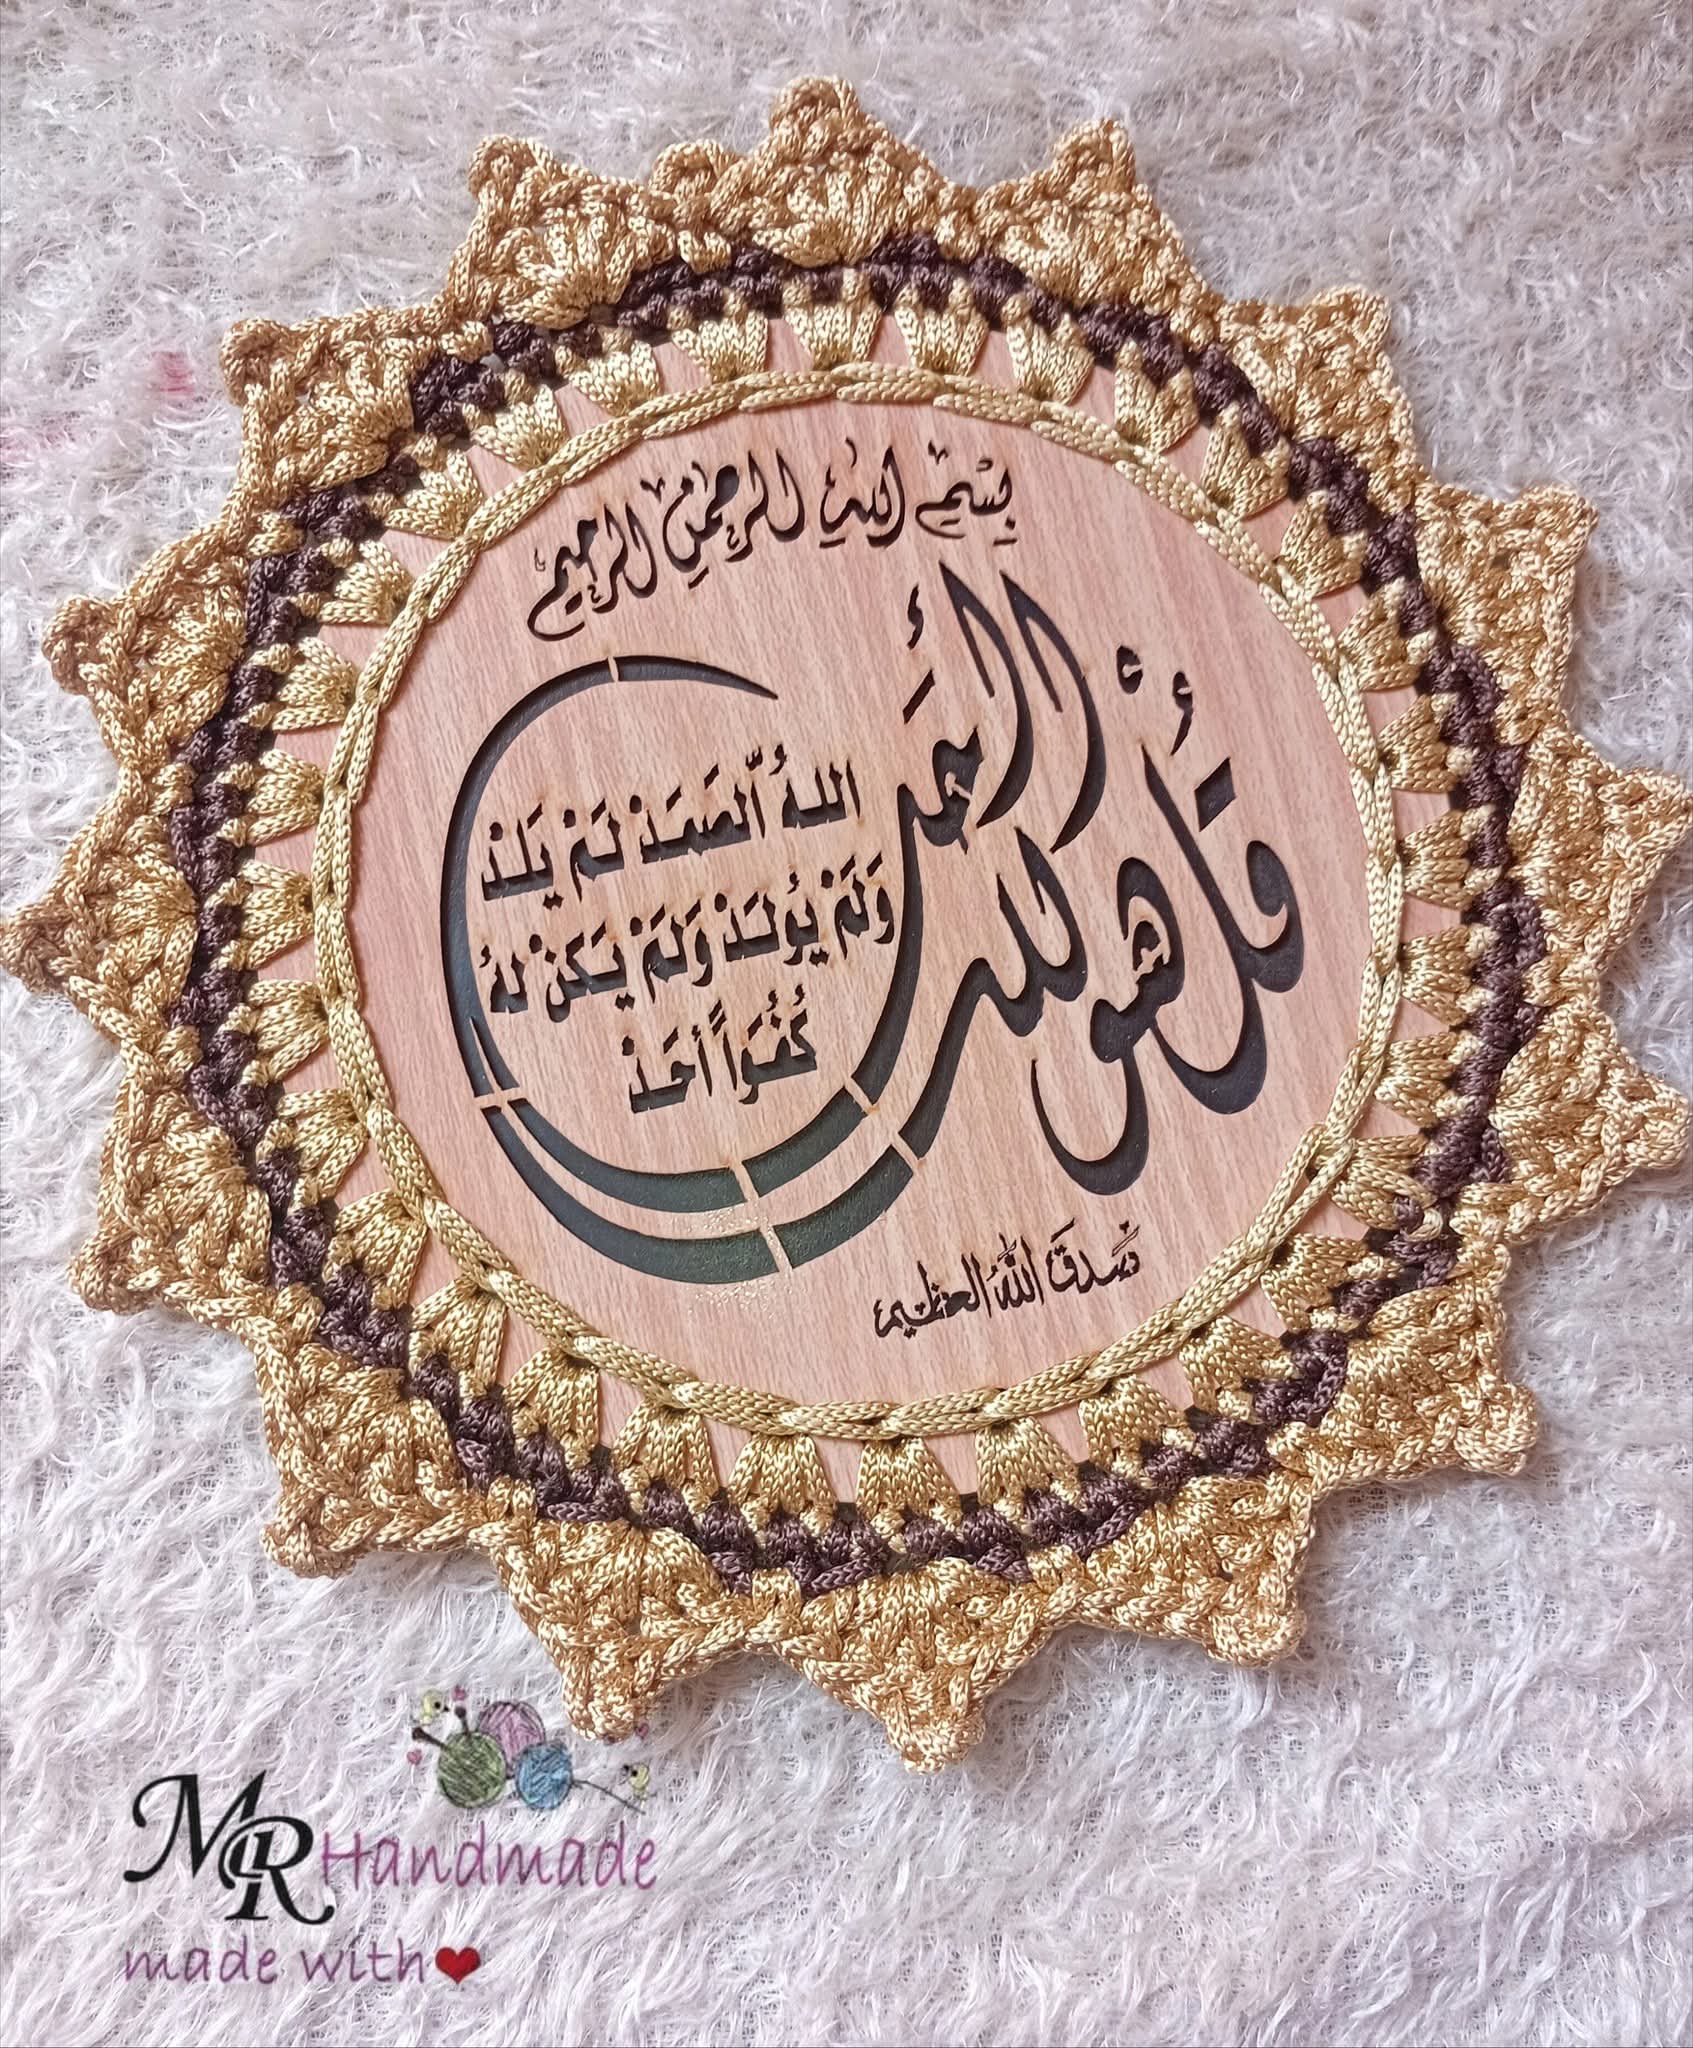 بِسْمِ اللهِ الرحمنِ الرحيم
قُلْ هُوَ اللهُ أَحَد
اللهُ الصَمَدْ لَمْ يَلَدْ
وَلَمْ يُولَدْ وَلَمْ يَكنْ لهُ
كُفُوَاً أحَدْ
صَدَقَ اللهُ العظيم
MR Handmade
made with